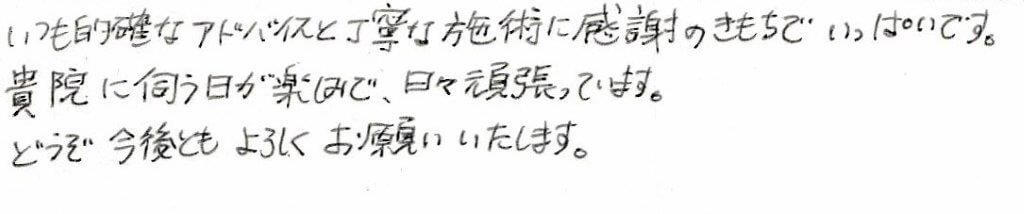 いつも的確なアドバイスと丁寧な施術に感謝のきもちでいっぱいです。
貴院に伺う日が楽しみで、日々頑張っています。
どうぞ今後ともよろしくお願いいたします。